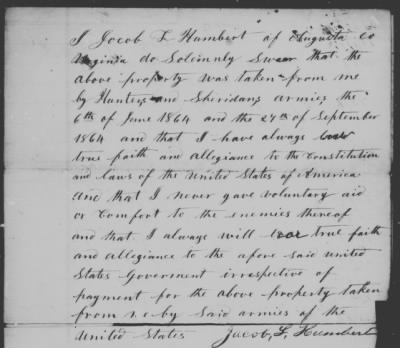 I Jacob L Humbert of Augusta Co
Virginia do Solemnly Swear that the
above property was taken from me
by Hunters and Sheridans armies the
6th of June 1864 and the 27th of September
1864 and that I have always
true faith and allegiance to the Constitution
and laws of the United States of America
and that I never gave voluntary aid
or comfort to the enemies thereof
and that I always will true faith
and allegiance to the afore said United
States Government irrespective of
payment for the above property taken
from me by said armies of the
United States Jacob, L, Humbert